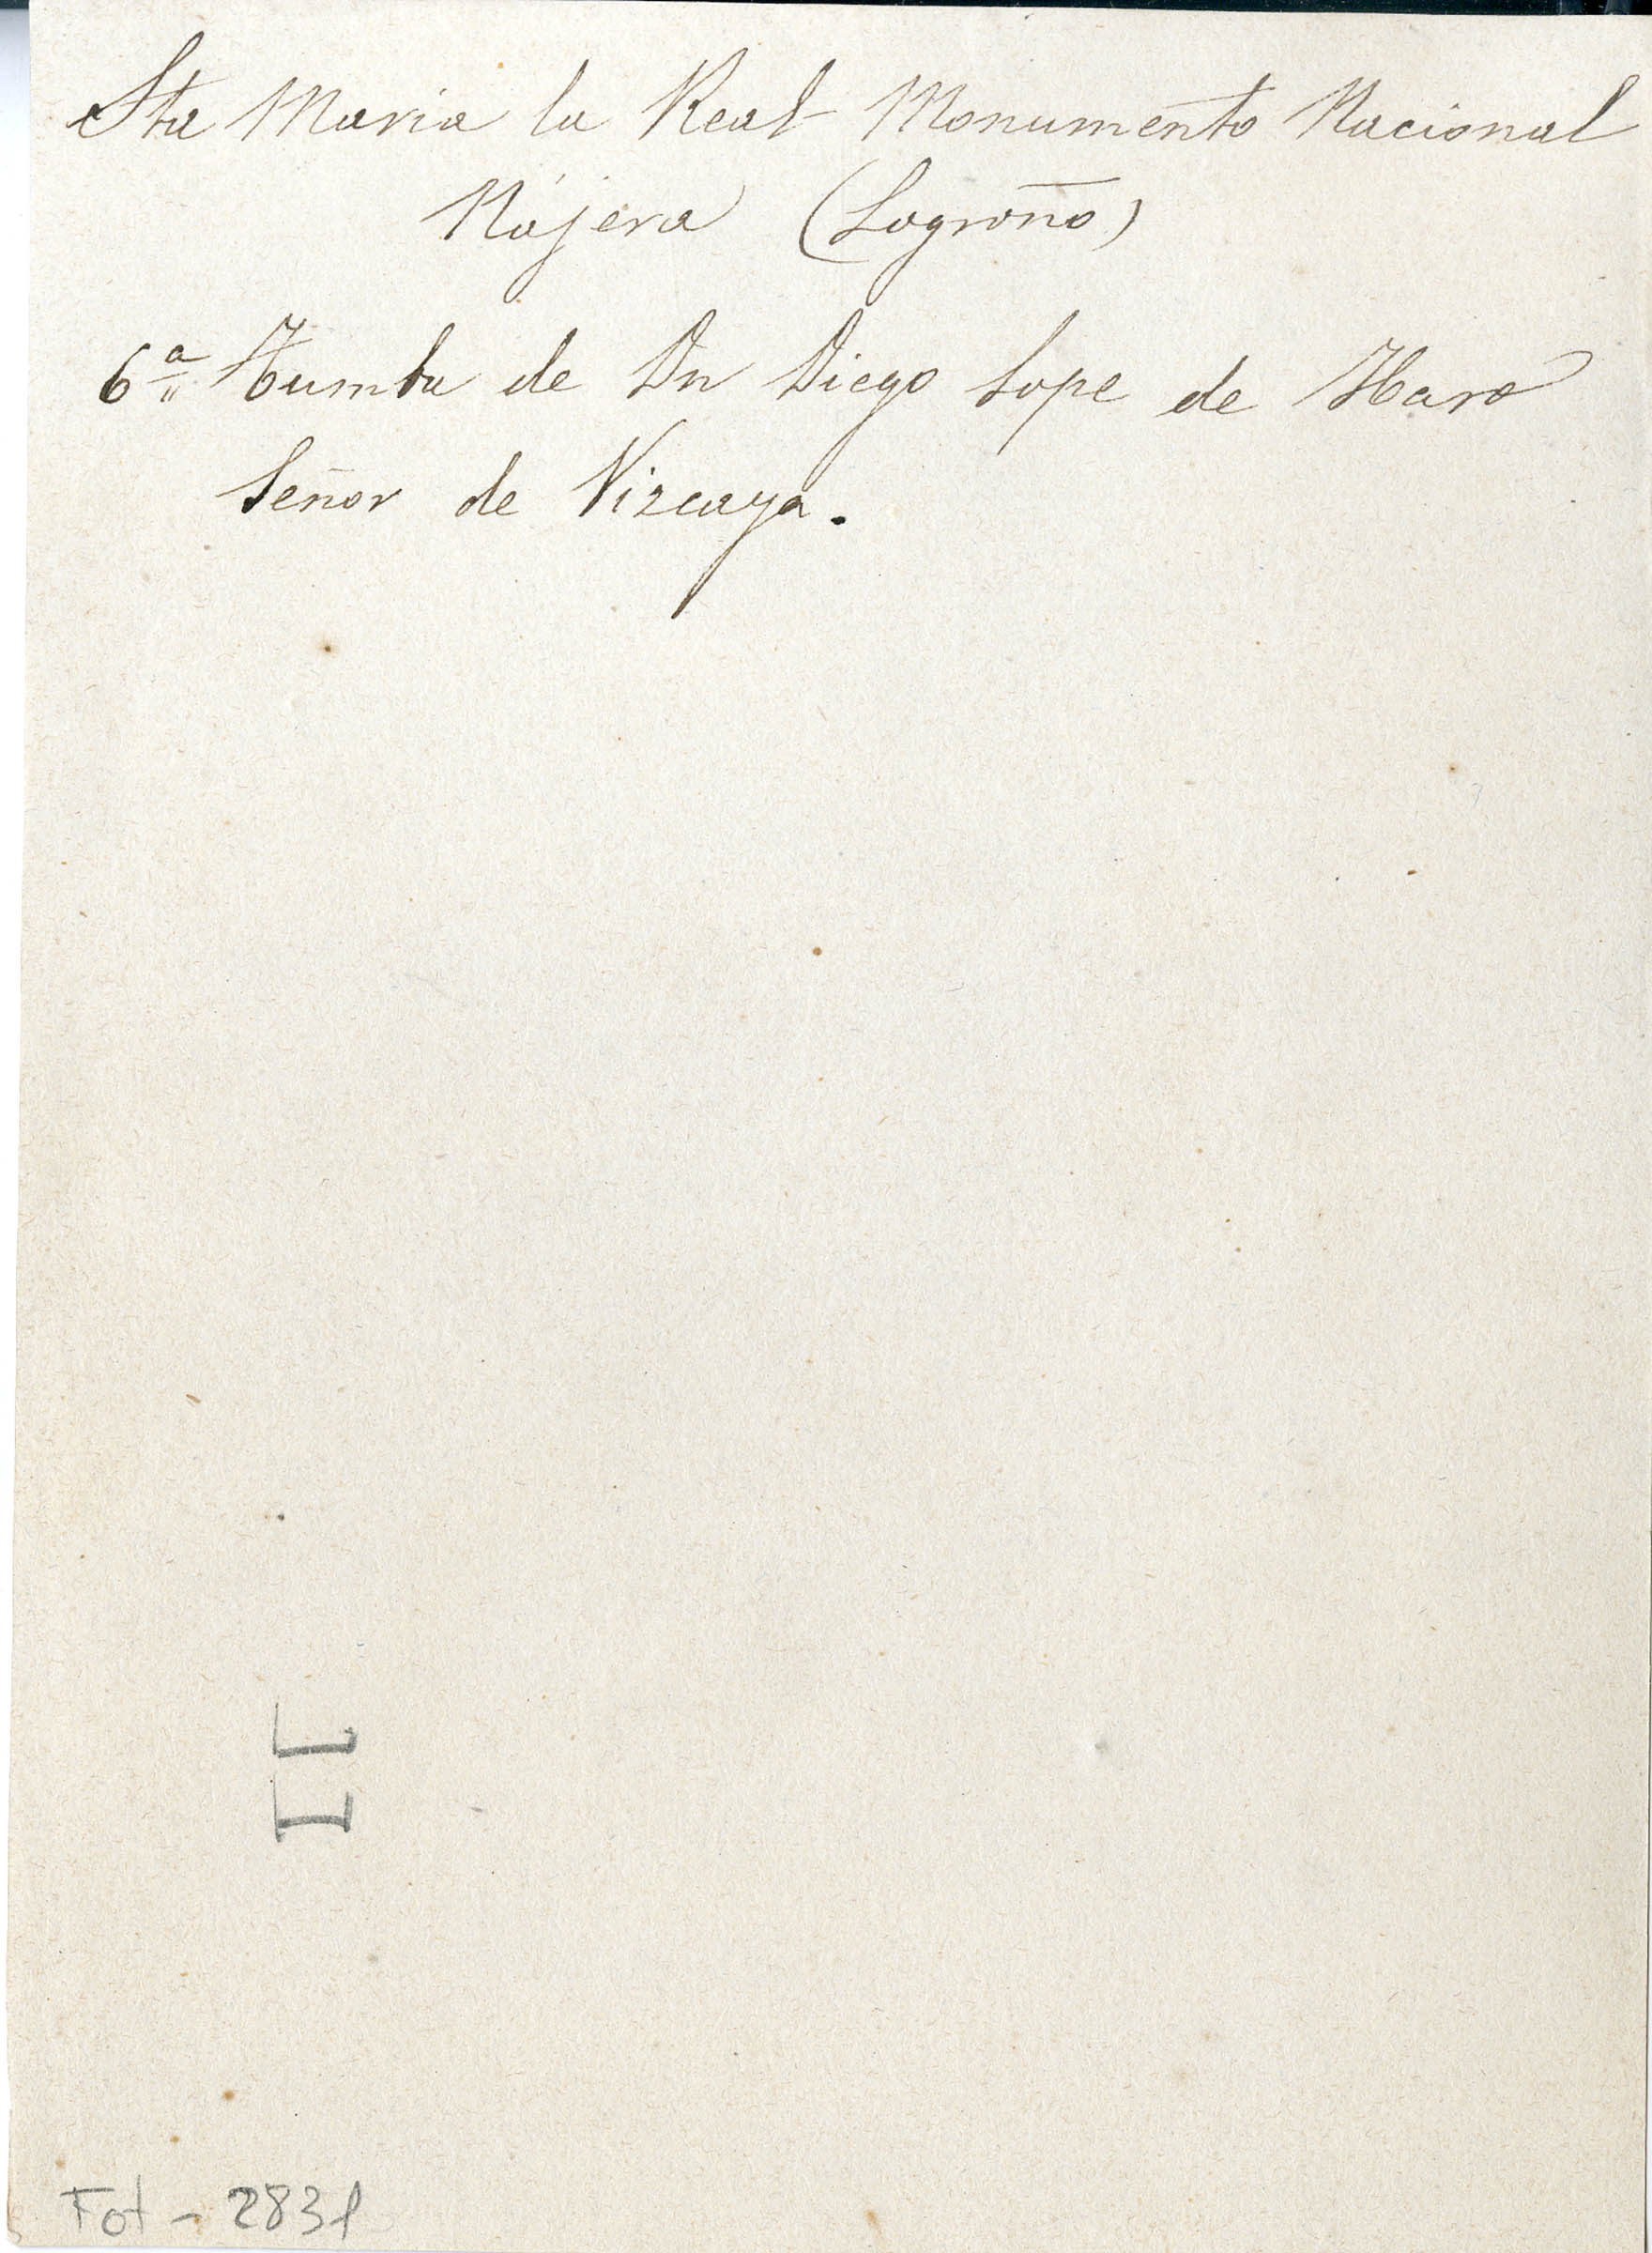 Sta Maria la Real Monumento Nacional
Nájera (Logroño)
6ª Tumba de Dn Diego Lope de Haro
Señor de Vizcaya.
II
Fot - 2831